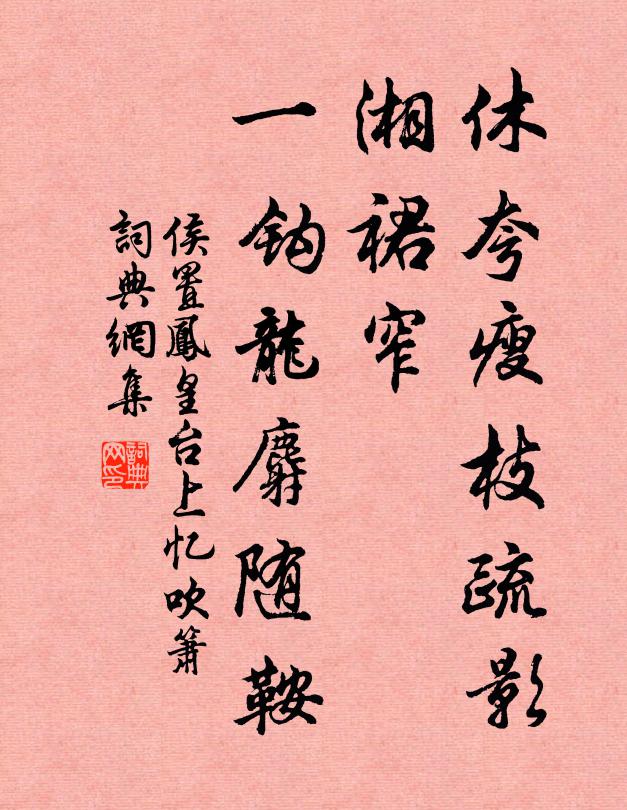 休夸瘦枝疏影
湘裙窄
一鈎龍麝随鞍
侯置鳳皇台上忆吹簫
詞典網集
詞典網印